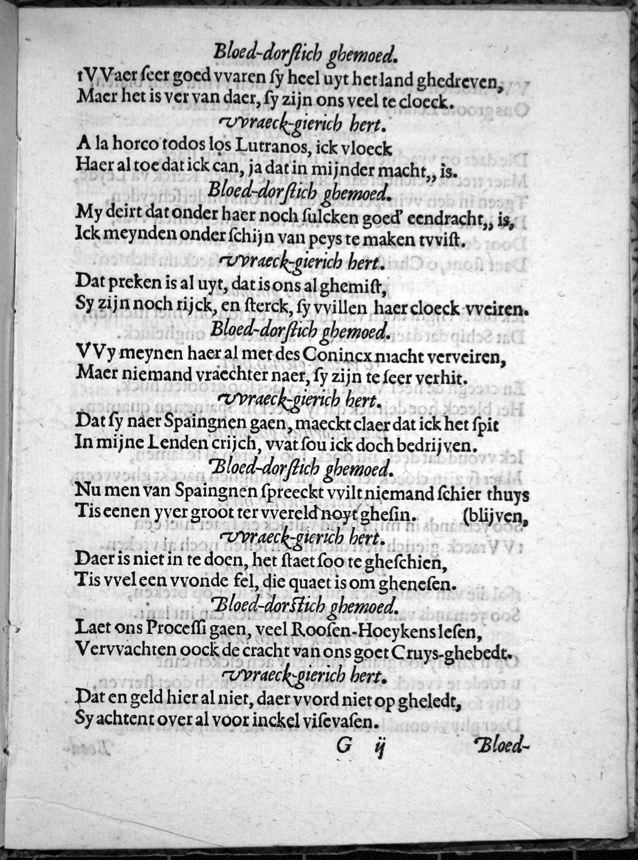 Bloed-dorſtich ghemoed.
tVVaer ſeer goed vvaren ſy heel uyt het land ghedreven,
Maer het is ver van daer, ſy zijn ons veel te cloeck.
Vvraeck-gierich hert.
A la horco todos los Lutranos, ick vloeck
Haer al toe dat ick can, ja dat in mijnder macht,, is.
Bloed-dorſtich ghemoed.
My deirt dat onder haer noch ſulcken goed' eendracht,, is,
Ick meynden onder ſchijn van peys te maken tvviſt.
Vvraeck-gierich hert.
Dat preken is al uyt, dat is ons al ghemiſt,
Sy zijn noch rijck, en ſterck, ſy vvillen haer cloeck vveiren.
Bloed-dorſtich ghemoed.
VVy meynen haer al met des Conincx macht verveiren,
Maer niemand vraechter naer, ſy zijn te ſeer verhit.
Vvraeck-gierich hert.
Dat ſy naer Spaingnen gaen, maeckt claer dat ick het ſpit
In mijne Lenden crijch, vvat ſou ick doch bedrijven.
Bloed-dorſtich ghemoed.
Nu men van Spaingnen ſpreeckt vvilt niemand ſchier thuys
Tis eenen yver groot ter vvereld noyt gheſin. (blijven,
Vvraeck-gierich hert.
Daer is niet in te doen, het ſtaet ſoo te gheſchien,
Tis vvel een vvonde fel, die quaet is om gheneſen.
Bloed-dorſtich ghemoed.
Laet ons Proceſſi gaen, veel Rooſen-Hoeykens leſen,
Vervvachten oock de cracht van ons goet Cruys-ghebedt.
Vvraeck-gierich hert.
Dat en geld hier al niet, daer vvord niet op gheledt,
Sy achtent over al voor inckel viſevaſen.
G ij Bloed-